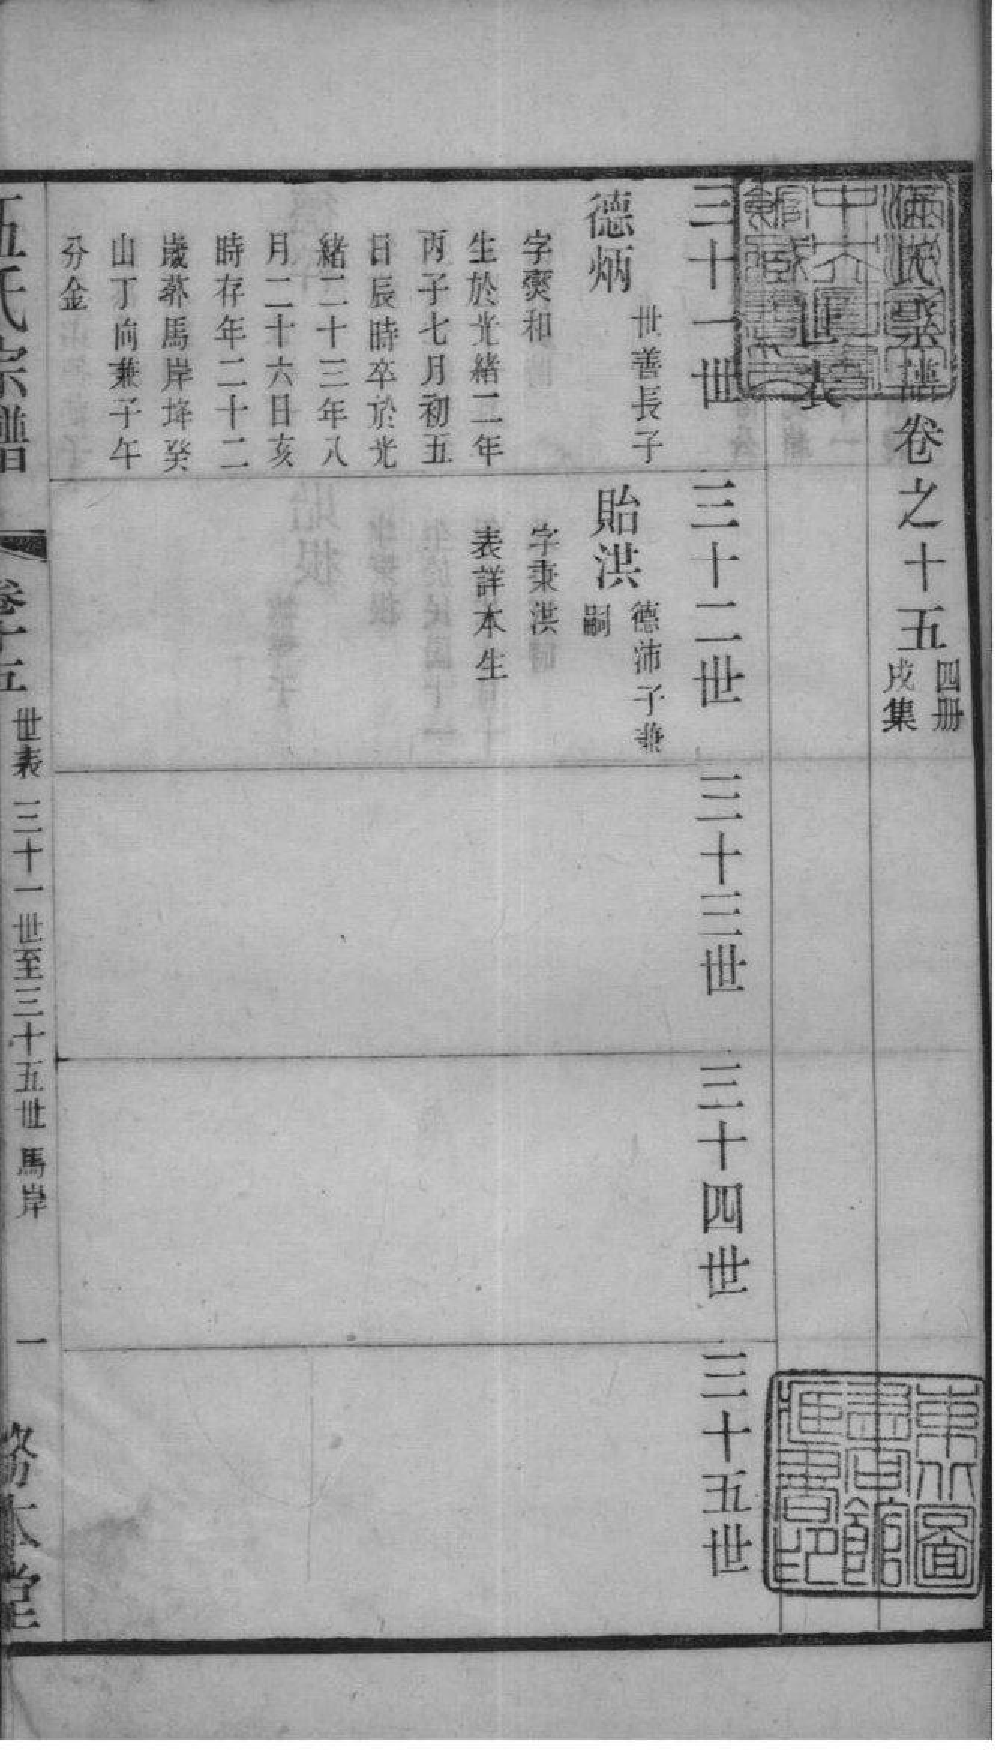 伍氏宗譜卷之十五 四册 戌集
世表
三十一世
三十二世
三十三世
三十四世
三十五世
德炳 世善長子
字燮和
生於光緒二年
丙子七月初五
日辰時卒於光
緒二十三年八
月二十六日亥
時存年二十二
歲葬馬岸垾癸
山丁向兼子午
分金
貽洪 德沛子兼
嗣
字秉洪
表詳本生
伍氏宗譜 卷十五 世表 三十一世至三十五世 馬岸 一 務本堂